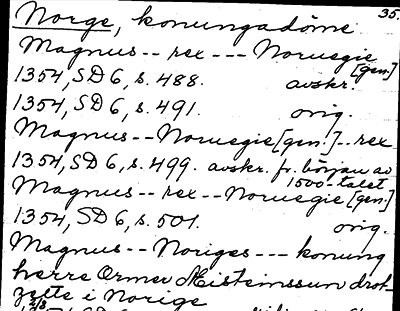 35.
Norge, konungadöme
Magnus -- rex --- Noruegie [gen.]
1354, SD 6, s. 488. avskr.
1354, SD 6, s. 491. orig.
Magnus -- Noruegie [gen.] -- rex
1354, SD 6, s. 499. avskr. fr. början av 1500-talet
Magnus -- rex -- Noruegie [gen.]
1354, SD 6, s. 501. orig.
Magnus -- Noriges --- konung
herre Ormer Øisteinssun drot-
zette i Norige